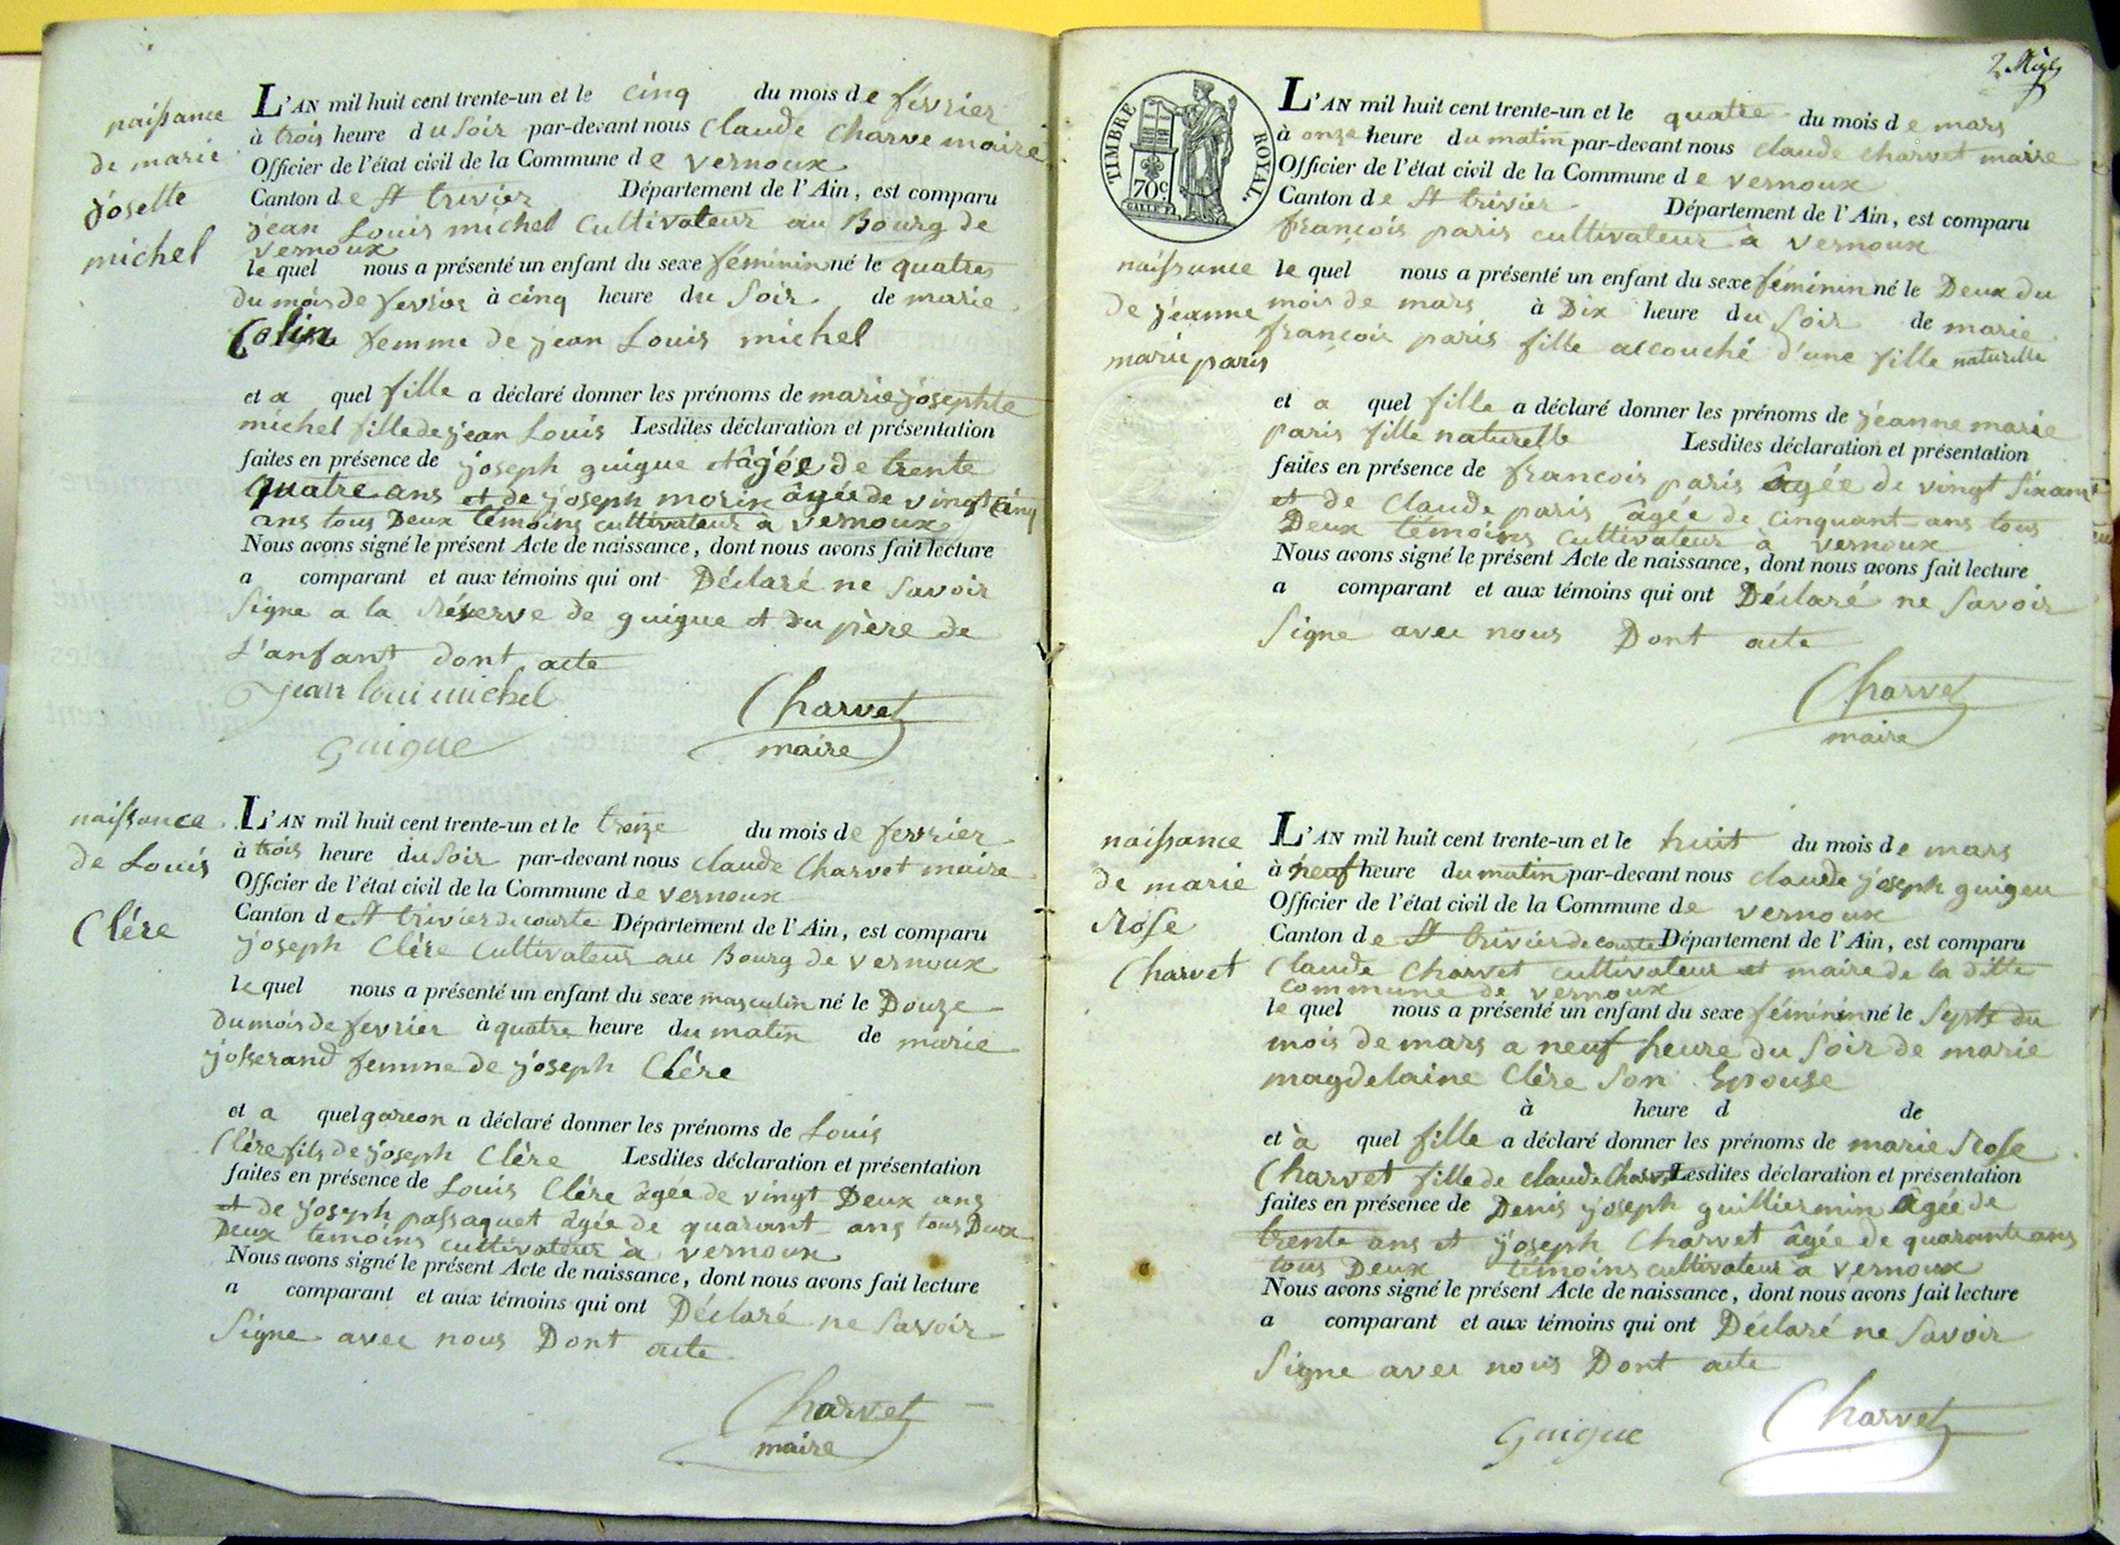 naissance
de marie
josette
michel
L'AN mil huit cent trente-un et le cinq du mois de février
à trois heure du soir par-devant nous Claude Charve maire
Officier de l'état civil de la Commune de vernoux
Canton de St trivier Département de l'Ain, est comparu
jean Louis michel Cultivateur au Bourg de
vernoux
le quel nous a présenté un enfant du sexe féminin né le quatre
du mois de fevrier à cinq heure du Soir de marie
Colin femme de jean Louis michel
et a quel fille a déclaré donner les prénoms de marie josephte
michel fille de jean Louis Lesdites déclaration et présentation
faites en présence de joseph guigue et âgée de trente
quatre ans et de joseph morin âgée de vingt cinq
ans tous Deux témoins cultivateur a vernoux
Nous avons signé le présent Acte de naissance, dont nous avons fait lecture
a comparant et aux témoins qui ont Déclaré ne Savoir
Signe a la Réserve de guigue et du père de
L'anfant dont acte
jean loui michel
Charvet
guigue
maire
naissance
de Louis
Clére
L'AN mil huit cent trente-un et le treize du mois de fevrier
à trois heure du soir par-devant nous claude Charvet maire
Officier de l'état civil de la Commune de vernoux
Canton de St trivier de courte Département de l'Ain, est comparu
joseph Clère Cultivateur au Bourg de vernoux
le quel nous a présenté un enfant du sexe masculin né le Douze
du mois de fevrier à quatre heure du matin de marie
josserand femme de joseph Clère
et a quel garcon a déclaré donner les prénoms de Louis
Clère fils de joseph Clère Lesdites déclaration et présentation
faites en présence de Louis Clère âgée de vingt Deux ans
et de joseph passaquet âgée de quarant ans tous Deux
Deux temoins cultivateur à vernoux
Nous avons signé le présent Acte de naissance, dont nous avons fait lecture
a comparant et aux témoins qui ont Déclaré ne Savoir
Signe avec nous Dont acte
Charvet
maire
2
TIMBRE ROYAL.
70c.
naissance
de jeanne
marie paris
L'AN mil huit cent trente-un et le quatre du mois de mars
à onze heure du matin par-devant nous claude charvet maire
Officier de l'état civil de la Commune de vernoux
Canton de St trivier Département de l'Ain, est comparu
françois paris cultivateur à vernoux
le quel nous a présenté un enfant du sexe féminin né le Deux du
mois de mars à Dix heure du Soir de marie
françois paris fille accouché d'une fille naturelle
et a quel fille a déclaré donner les prénoms de jeanne marie
paris fille naturelle Lesdites déclaration et présentation
faites en présence de francois paris âgée de vingt Six ans
et de Claude paris âgée de cinquant ans tous
Deux témoins cultivateur a vernoux
Nous avons signé le présent Acte de naissance, dont nous avons fait lecture
a comparant et aux témoins qui ont Déclaré ne Savoir
Signe avec nous Dont acte
Charvet
maire
naissance
de marie
Rose
Charvet
L'AN mil huit cent trente-un et le huit du mois de mars
à neuf heure du matin par-devant nous claude joseph guigeu
Officier de l'état civil de la Commune de vernoux
Canton de St trivier de courte Département de l'Ain, est comparu
Claude Charvet cultivateur et maire de la ditte
commune de vernoux
le quel nous a présenté un enfant du sexe féminin né le Septs du
mois de mars a neuf heure du Soir de marie
magdelaine Clère Son Epouse
à heure d de
et à quel fille a déclaré donner les prénoms de marie Rose
Charvet fille de claude Charvet Lesdites déclaration et présentation
faites en présence de Denis joseph guilliermin âgée de
trente ans et joseph Charvet âgée de quarante ans
tous Deux témoins cultivateur a vernoux
Nous avons signé le présent Acte de naissance, dont nous avons fait lecture
a comparant et aux témoins qui ont Déclaré ne Savoir
Signe avec nous Dont acte
Guigue Charvet